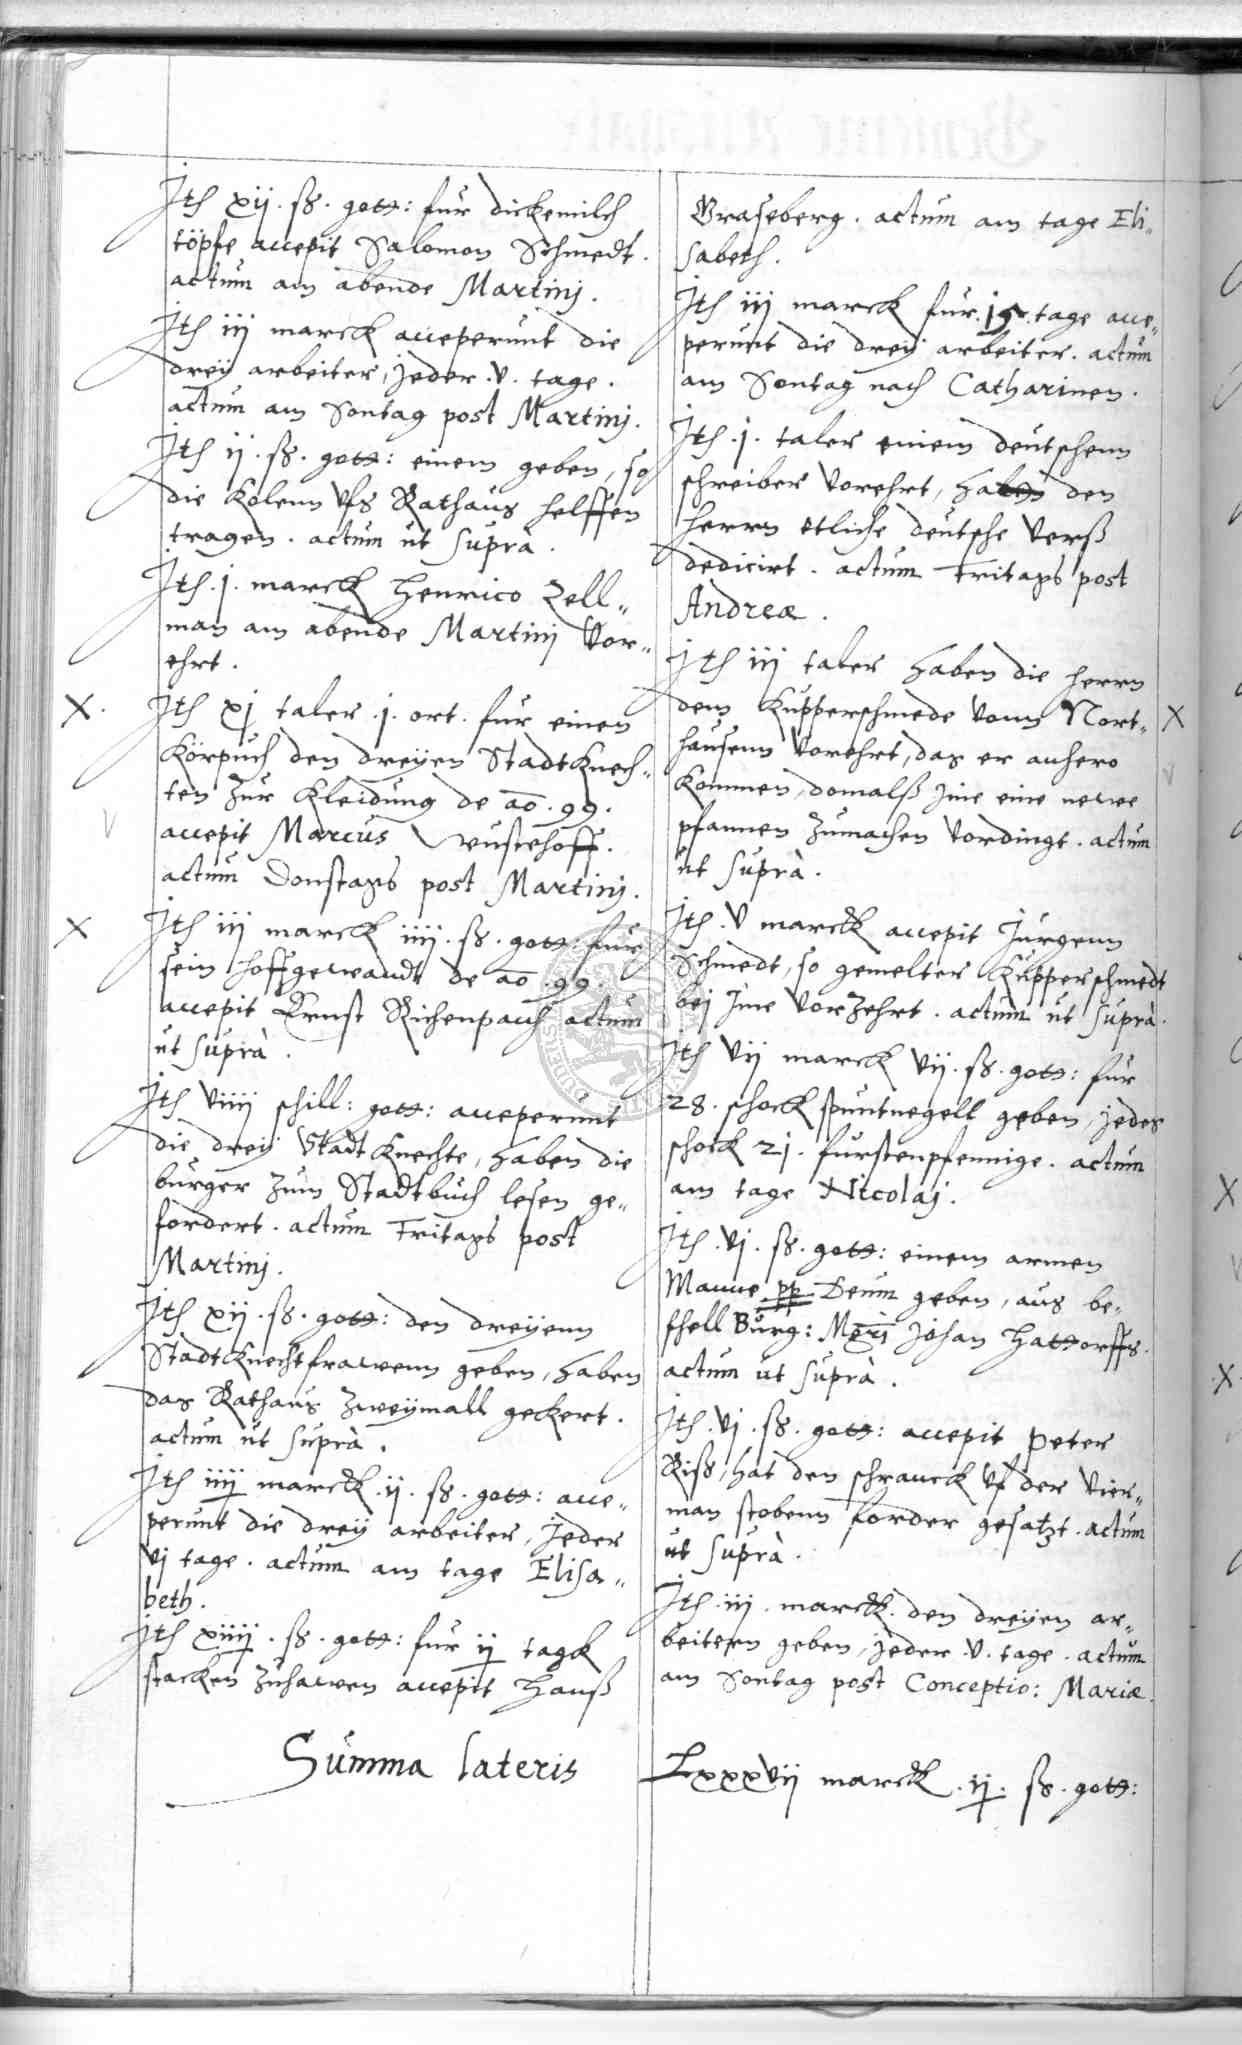 Ith xij. ß. gott: fur dickemilch
töpfe accepit Salomon Schmedt.
actum am abende Martinj.
Ith iij marck acceperunt die
dreÿ arbeiter, jeder .v. tage.
actum am Sontag post Martinj.
Ith ij. ß. gott: einem geben, so
die Kolenn vfs Rathaus helffen
tragen. actum ut suprà.
Ith .j. marck Henrico Zell„
man am abende Martinj vor„
ehrt.
Ith xj taler .j. ort. fur einen
Körpuch den dreÿen StadtKnech„
ten zur Kleidung de ao. 99.
accepit Marcus Wustehoff.
actum Donstags post Martinj.
Ith iij marck iiij. ß. gott: fur
sein hoffgewandt de ao .99.
accepit Ernst Richenpach actum
ut suprà.
Ith viiij schill: gott: acceperunt
die dreÿ StadtKnechte, haben die
burger zum Stadtbuch lesen ge„
fordert. actum Fritags post
Martinj.
Ith xij. ß. gott: den dreÿenn
StadtKnechtfrawenn geben, haben
das Rathaus zweÿmall gekert.
actum ut suprà.
Ith iiij marck .ij. ß. gott: acce„
perunt die dreÿ arbeiter, jeder
vj tage. actum am tage Elisa„
beth.
Ith xiiij. ß. gott: fur ij tagk
stacken zuhawen accepit Hanß
Summa lateris
Graseberg. actum am tage Eli„
sabeth.
Ith iij marck fur .15. tage acce„
perunt die dreÿ arbeiter. actum
am Sontag nach Catharinen.
Ith .j. taler einem deutschenn
schreiber vorehrt, den
Herrn etliche deutsche verß
dedicirt. actum Fritags post
Andreæ.
Ith iij taler haben die Herrn
dem Kupperschmede vonn Nort„
hausenn vorehrt, das er anhero
Kommen, domalß Jme eine newe
pfannen zumachen vordingt. actum
ut suprà.
Ith .v marck accepit Jurgenn
Schmedt, so gemelter Kupperschmedt
bej Jme vorzehrt. actum ut suprà.
Ith vij marck vij. ß. gott: fur
28. schock spuntnegell geben, jedes
schock 21. furstenpfennige. actum
am tage Nicolaj.
Ith .vj. ß. gott: einem armen
Manne pp Deum geben, aus be„
fhell Burg: Mgri Johan Hattorffs.
actum ut suprà.
Ith .vj. ß. gott: accepit Peter
Riß, hat den schranck vf der vier„
man stobenn forder gesatzt. actum
ut suprà.
Ith .iij. marck. den dreÿen ar„
beitern geben, jeder .v. tage. actum
am Sontag post Conceptio: Mariæ.
Lxxxvij marck .ij. ß. gott: